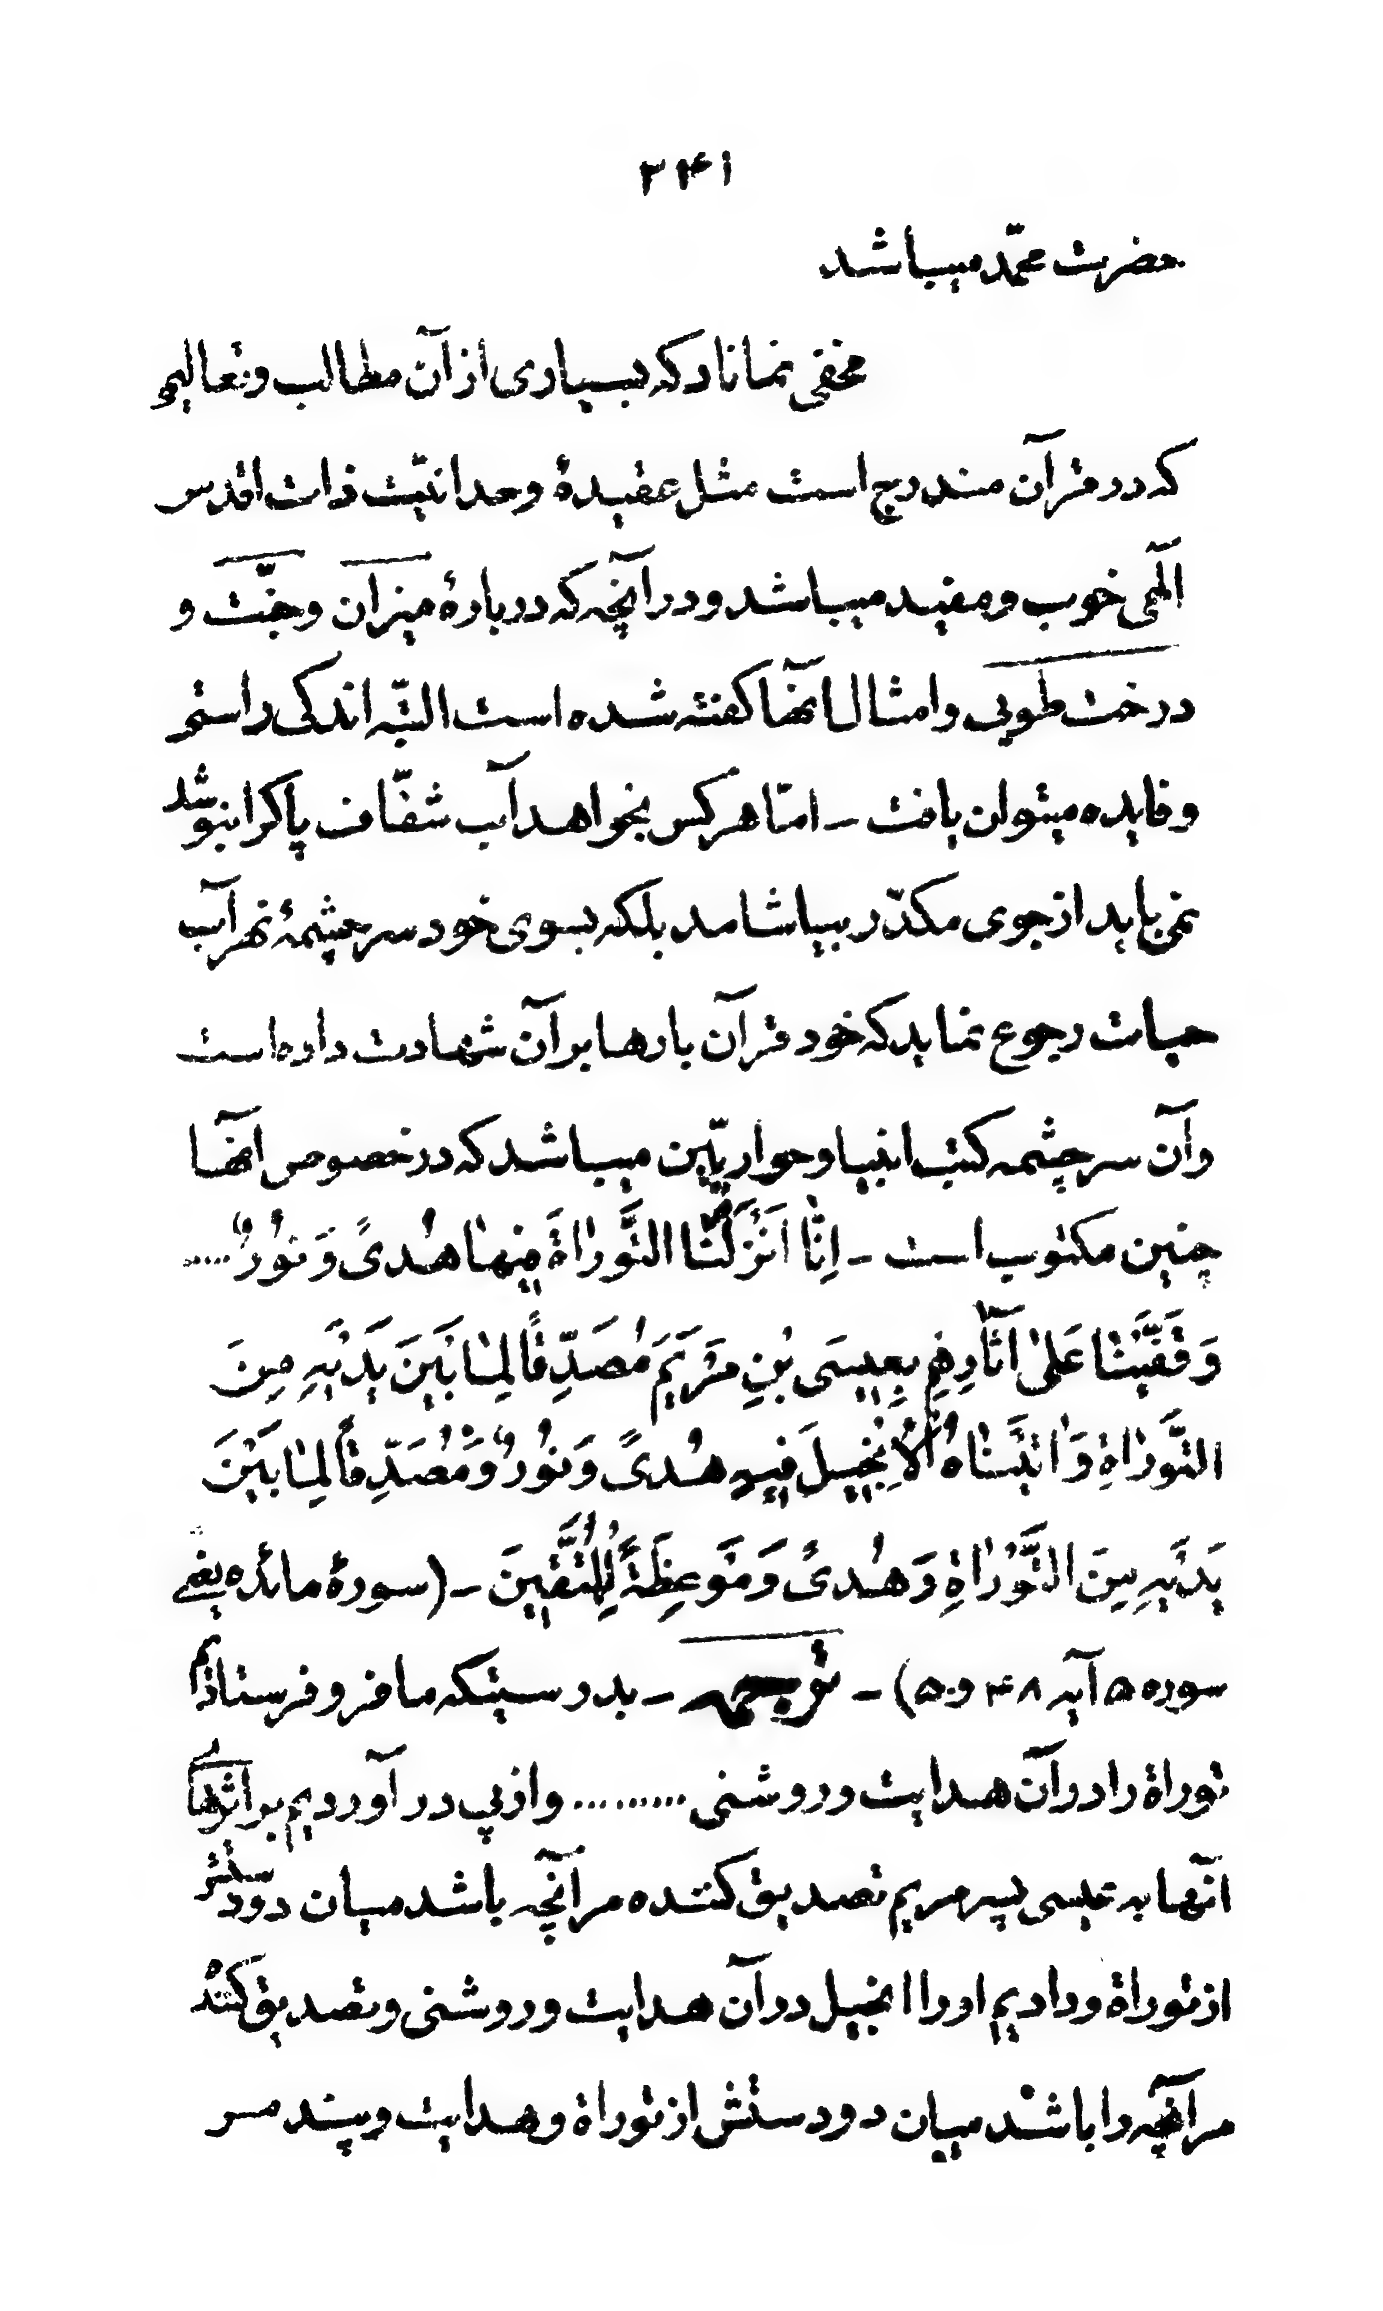 ۲۴۱
حضرت محمّد میباشد
مخفی نماناد که بسیاری از آن مطالب و تعالیم
که در قرآن مندرج است مثل عقیدهٔ وحدانیّت ذات اقدس
الٓهی خوب و مفید میباشد و در آنچه که دربارهٔ میزان و جنّت و
درخت طوبی و امثال آنها گفته شده است البتّه اندکی راستی
و فایده میتوان یافت ـ امّا هرکس بخواهد آب شفّاف پاکرا بنوشد
نمی باید از جوی مکدّر بیاشامد بلکه بسوی خود سرچشمهٔ نهر آب
حیات رجوع نماید که خود قرآن بارها بر آن شهادت داده است
و آن سرچشمه کتب انبیا و حواریّین میباشد که در خصوص آنها
چنین مکتوب است ـ اِنّٰا اَنْزَلْنَا التَّوْرٰاةَ فِیهٰا هُدیً وَ نُورٌ .....
وَ قَفَّیْنٰا عَلیٰ آثٰارِهِمِ بِعِیسَی بْنِ مَرْیَمَ مُصَدِّقًا لِمٰا بَیْنَ یَدَیْهِ مِنَ
التَّوْرٰاةِ وَ اٰتَیْنٰاهُ الْاِنْجِیلَ فِیهِ هُدیً وَ نُورٌ وَ مُصَدِّقًا لِمٰا بَیْنَ
یَدَیْهِ مِنَ التَّوْرٰاةِ وَ هُدیً وَ مَوْعِظَةً لِلْمُتَّقِینَ ـ (سورهٔ مائده یعنی
سوره ۵ آیه ۴۸ و ۵۰) ـ ترجمه ـ بدرستیکه ما فرو فرستادیم
توراة را در آن هدایت و روشنی ......... و از پی در آوردیم بر اثرهای
آنها به عیسی پسر مریم تصدیق کننده مر آنچه باشد میان دو دستش
از توراة و دادیم او را انجیل در آن هدایت و روشنی و تصدیق کننده
مر آنچه را باشد میان دو دستش از توراة و هدایت و پند مر